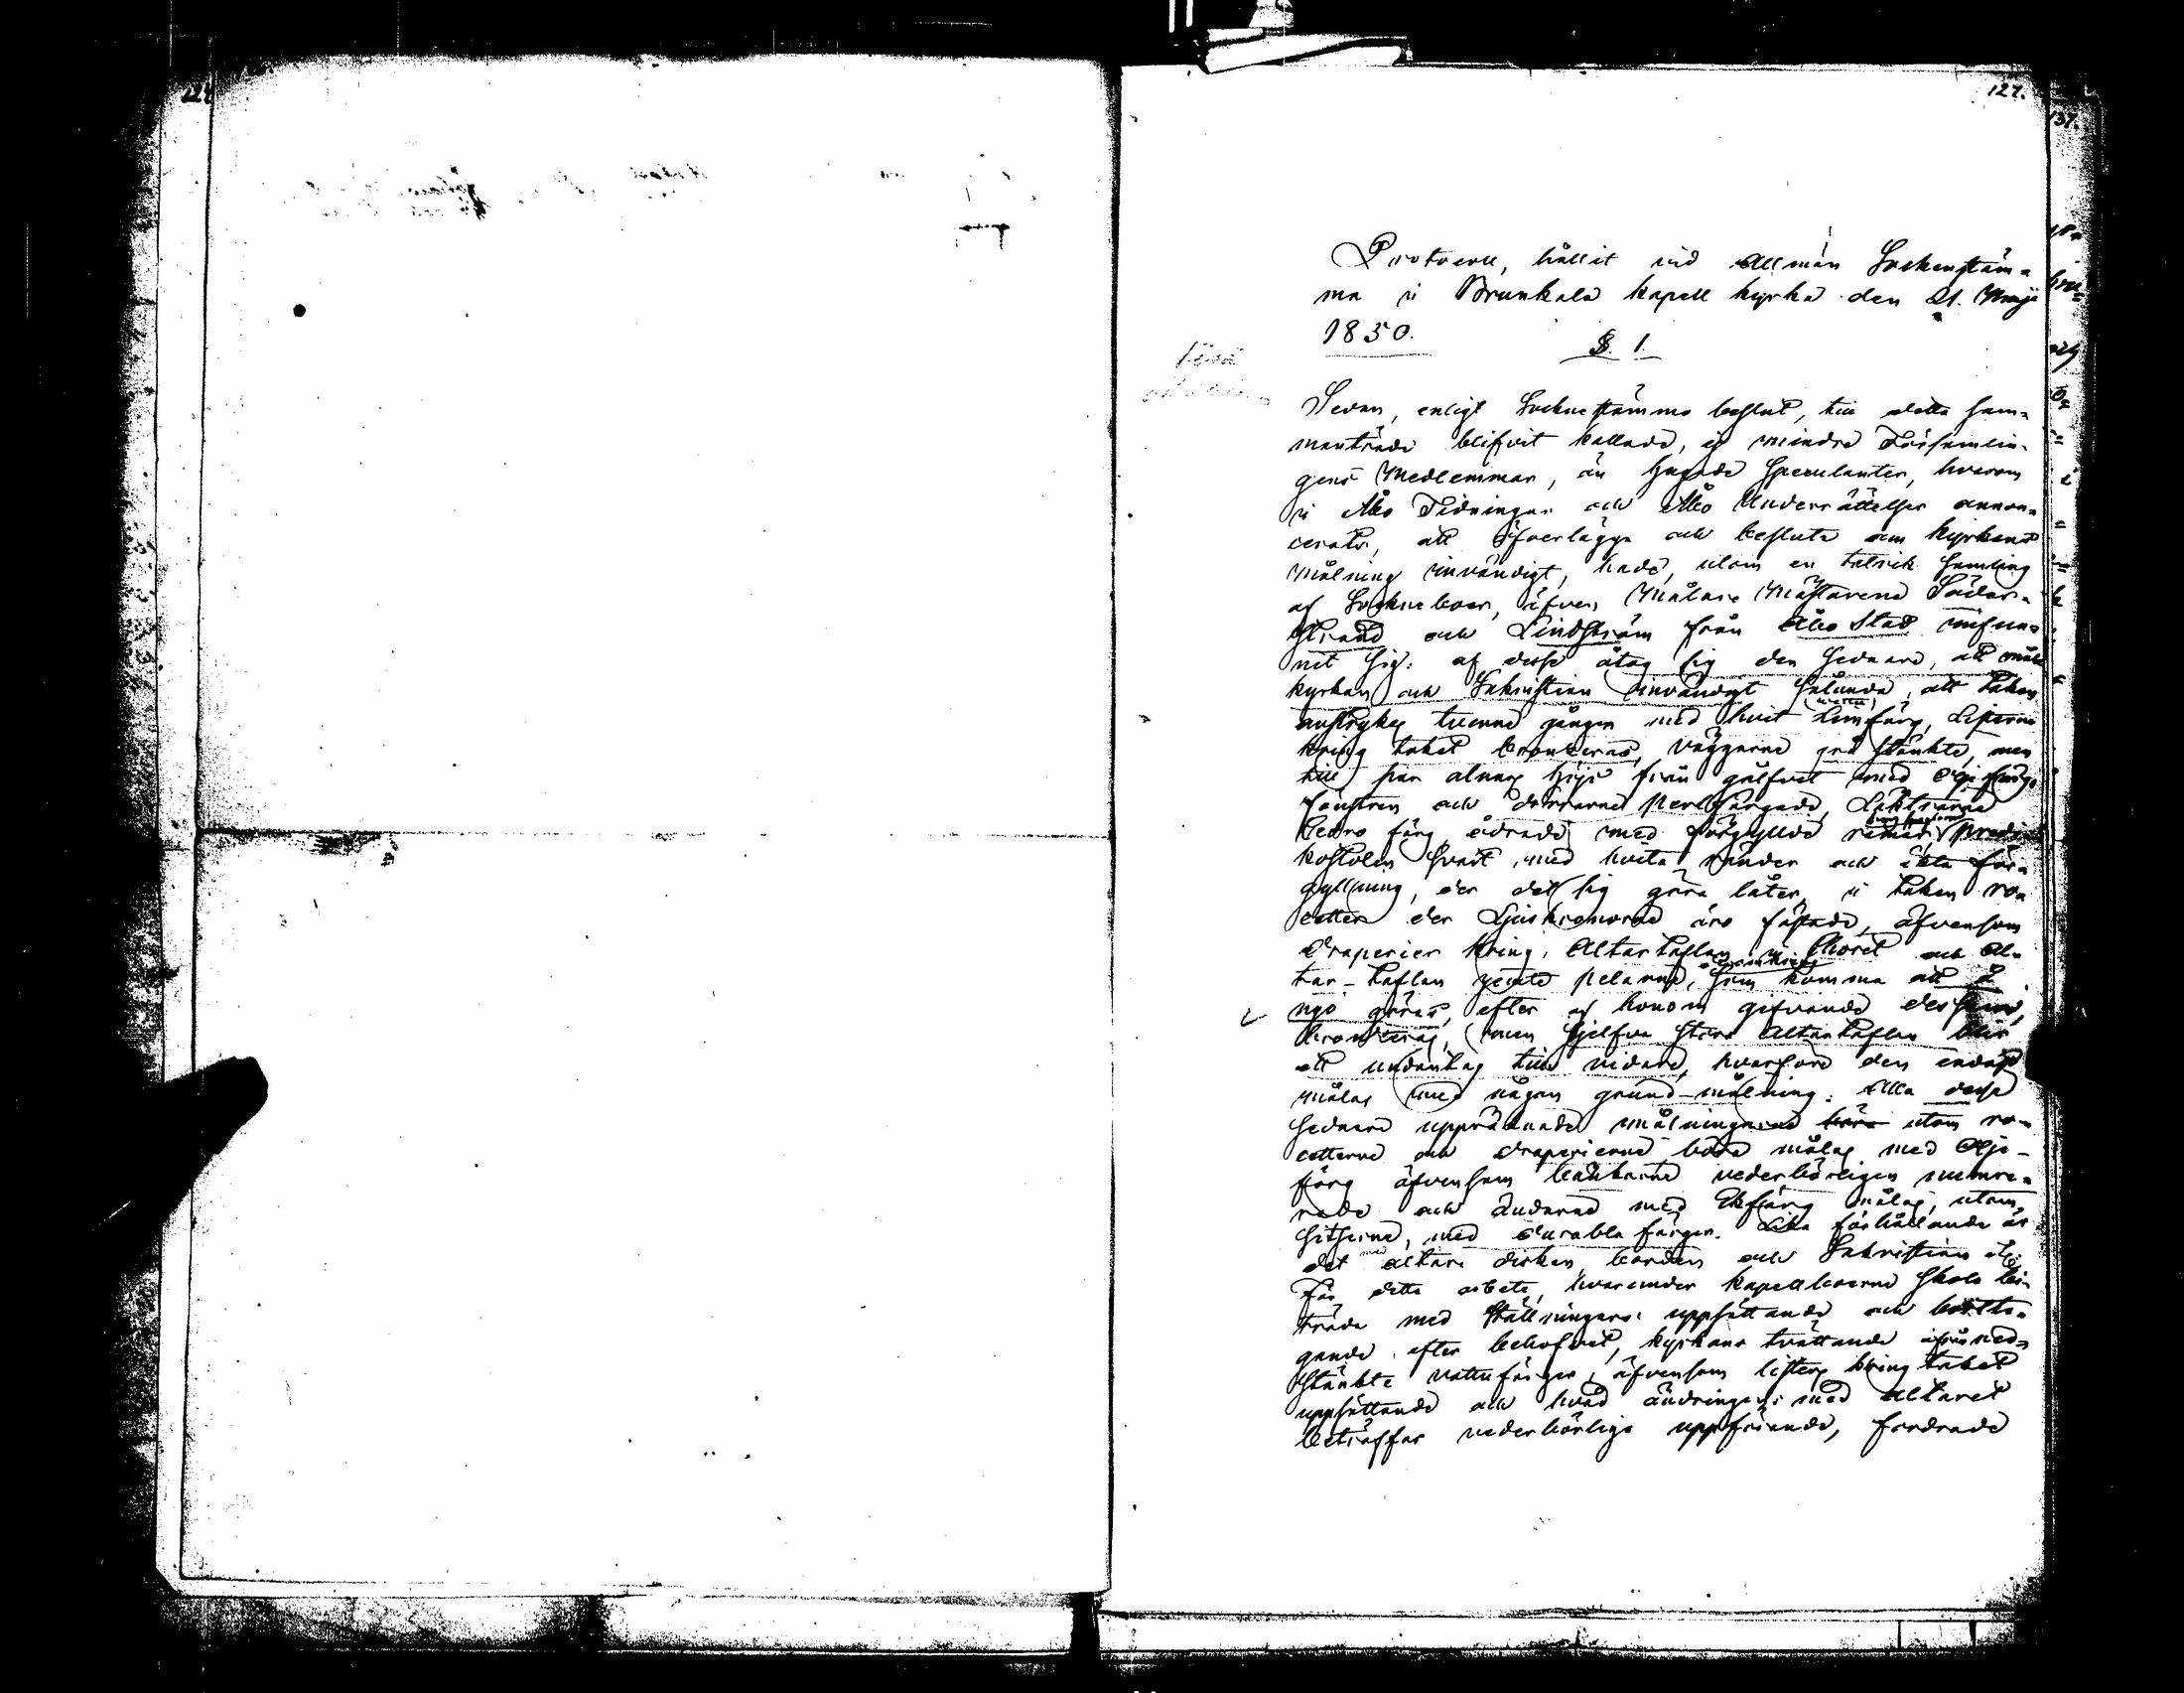 127.
Protocoll, hållit vid Allmän Sockenstäm=
ma i Brunkala kapell kyrka den 21. Maji
1850.
§. 1.
Sedan, enligt Sockenstämmo beslut, till detta sam=
manträde blifvit kallade, ej mindre Församlin-
gens Medlemmar, än hugade Speculanter, hvarom
i Åbo Tidningar och Åbo Underrättelser annon=
cerats, att öfverlägga och besluta om kyrkans
målning invändigt, hade, utom en talrik samling
af Sockneboer, äfven Målare Mästarene Söder=
strand och Lindström från Åbo Stad infun=
nit sig: af desse åtog sig den sednare, att måla
kyrkan och Sakristian invändigt sålunda, att taken
anstrykes tvenne gånger med hvit Limfärg, Listerne
kring taket bronceras, väggarne grå stänkte, men
till par alnars höjd från golfvet med oljefärg,
fönstren och dörrarne perlfärgade, Läktrarne
Cedro färg ådrade med förgyllde
kostolen svart med hvita ränder och äkta för=
gyllning, der det sig göra låter, i taken ro=
cetter der Ljuskronorne äro fästade, äfvensom
draperier kring Altartaflan i Choret och Al=
tar-taflan jemte pelarne, som komma att å
nyo göras, efter af honom gifvande dessein,
bronceras, men sjelfva stora Altartaflan blir
ett undantag till vidare, hvarföre den endast
målas med någon grund-målning. Alla desse
sednare uppräknade målningarne böra utom ro=
cetterne och draperierne böra målas med Olje-
färg äfvensom bänkarne vederbörligen numre=
rade och ändarne med Ekfärg målas, utom
sitserne, med durabla färger. Lika förhållande är
det med altare disken, borden och Sakristian
För detta arbete, hvarunder kapellboerne skola bi=
träda med ställningars uppsättande och bortta=
gande efter behofvet, kyrkans tvättande ifrån ned=
stänkte vattufärger, äfvensom listers kring taket
uppsättande och hvad ändringen med altaret
beträffar vederbörliga uppförande, fordrade